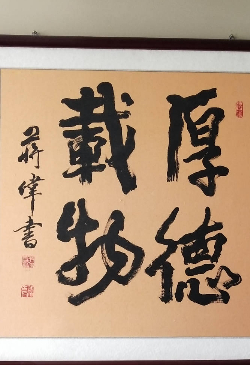 厚德
載物
蔣偉書